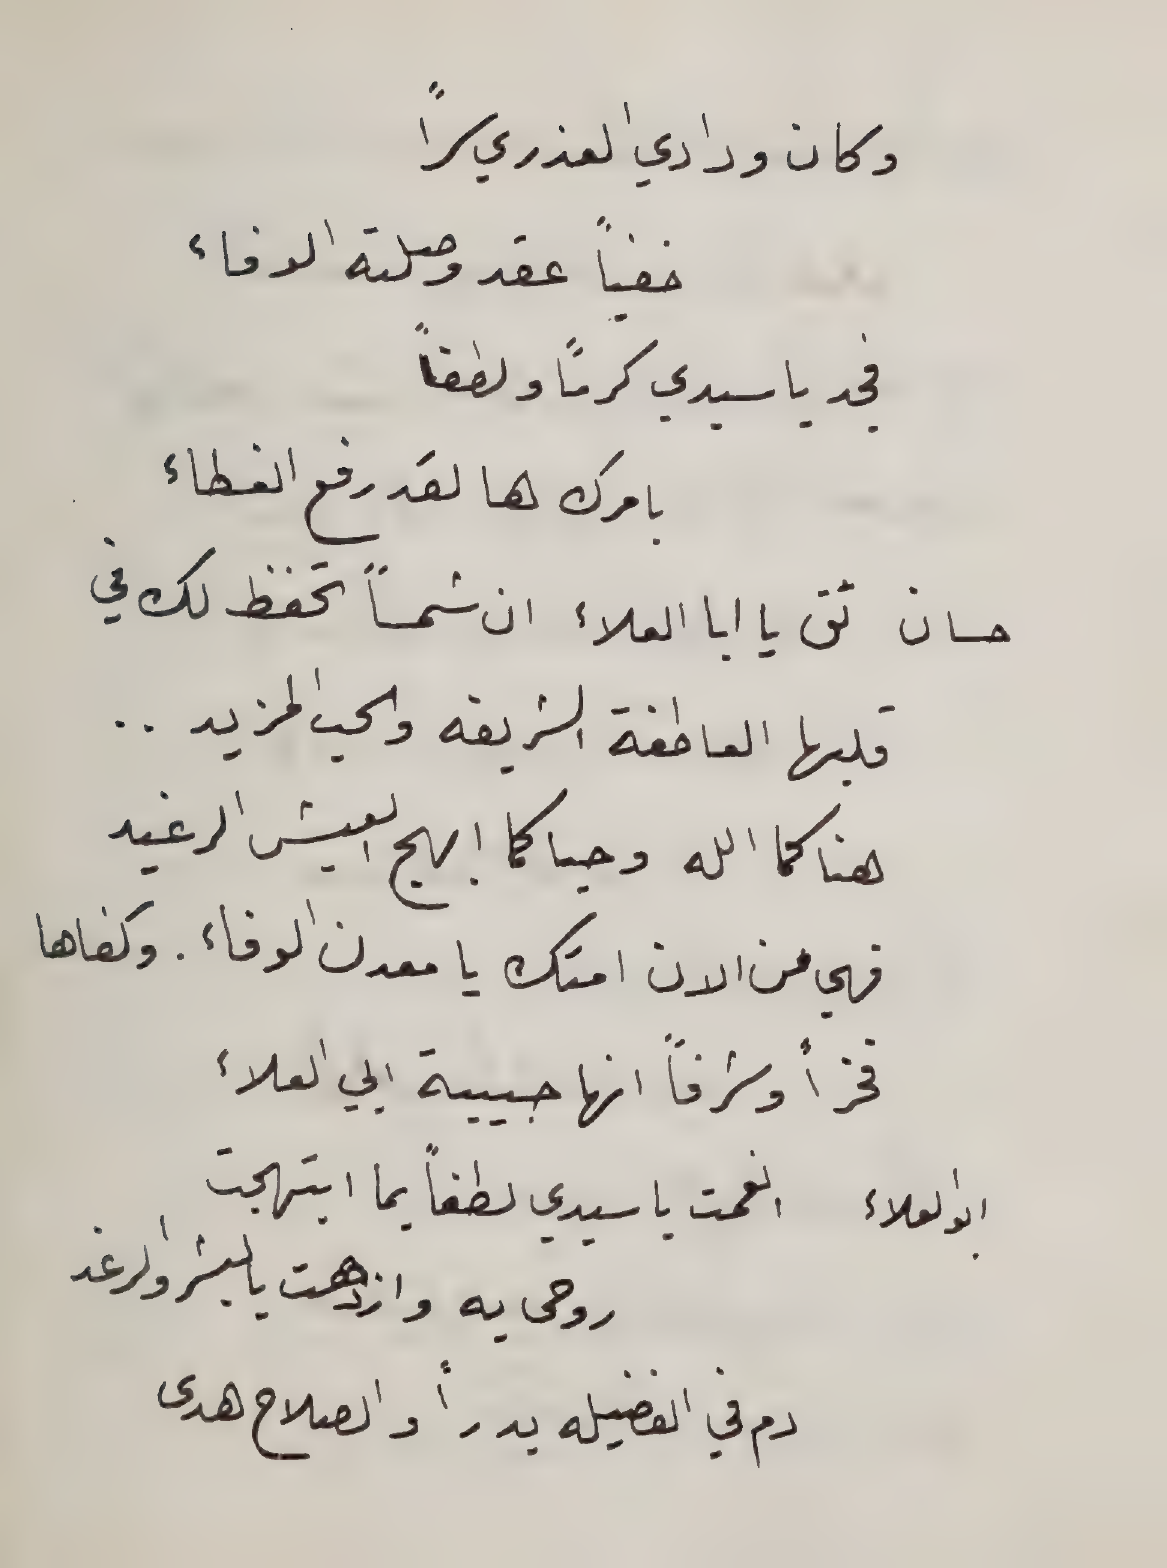 وكان ودادي العذري سراً
خفياً عقد وصلته الوفاء
فجد يا سيدي كرماً ولطفاً
بامرك ها لقد رفع الغطاء
حسان ثق يا ابا العلاء ان شمساً تحفظ لك في
قلبها العاطفة الشريفه والحب المزيد ..
هناكما الله وحباكما ابهج العيش الرغيد
فهي من الان امتك يا معدن الوفاء . وكفاها
فخراً وشرفاً انها حبيبة ابي العلاء
ابو العلاء انعمت يا سيدي لطفاً بما ابتهجت
روحى به وازدهت بالبشر والرغد
دم في الفضيله بدراً والصلاح هدى